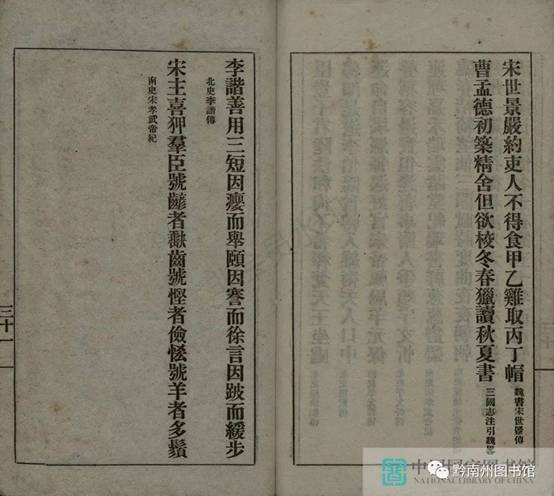 宋世景嚴約吏人不得食甲乙雞取丙丁帽
魏書宋世景傳
曹孟德初築精舍但欲校冬春獵讀秋夏書
三國志注引魏略
李諧善用三短因癭而舉頤因謇而徐言因跛而緩步
北史李諧傳
宋主喜狎羣臣號齴者齒號慳者儉悋號羊者多鬚
南史宋孝武帝紀
三十一
中国国家图书馆
NATIONAL LIBRARY OF CHINA
黔南州图书馆